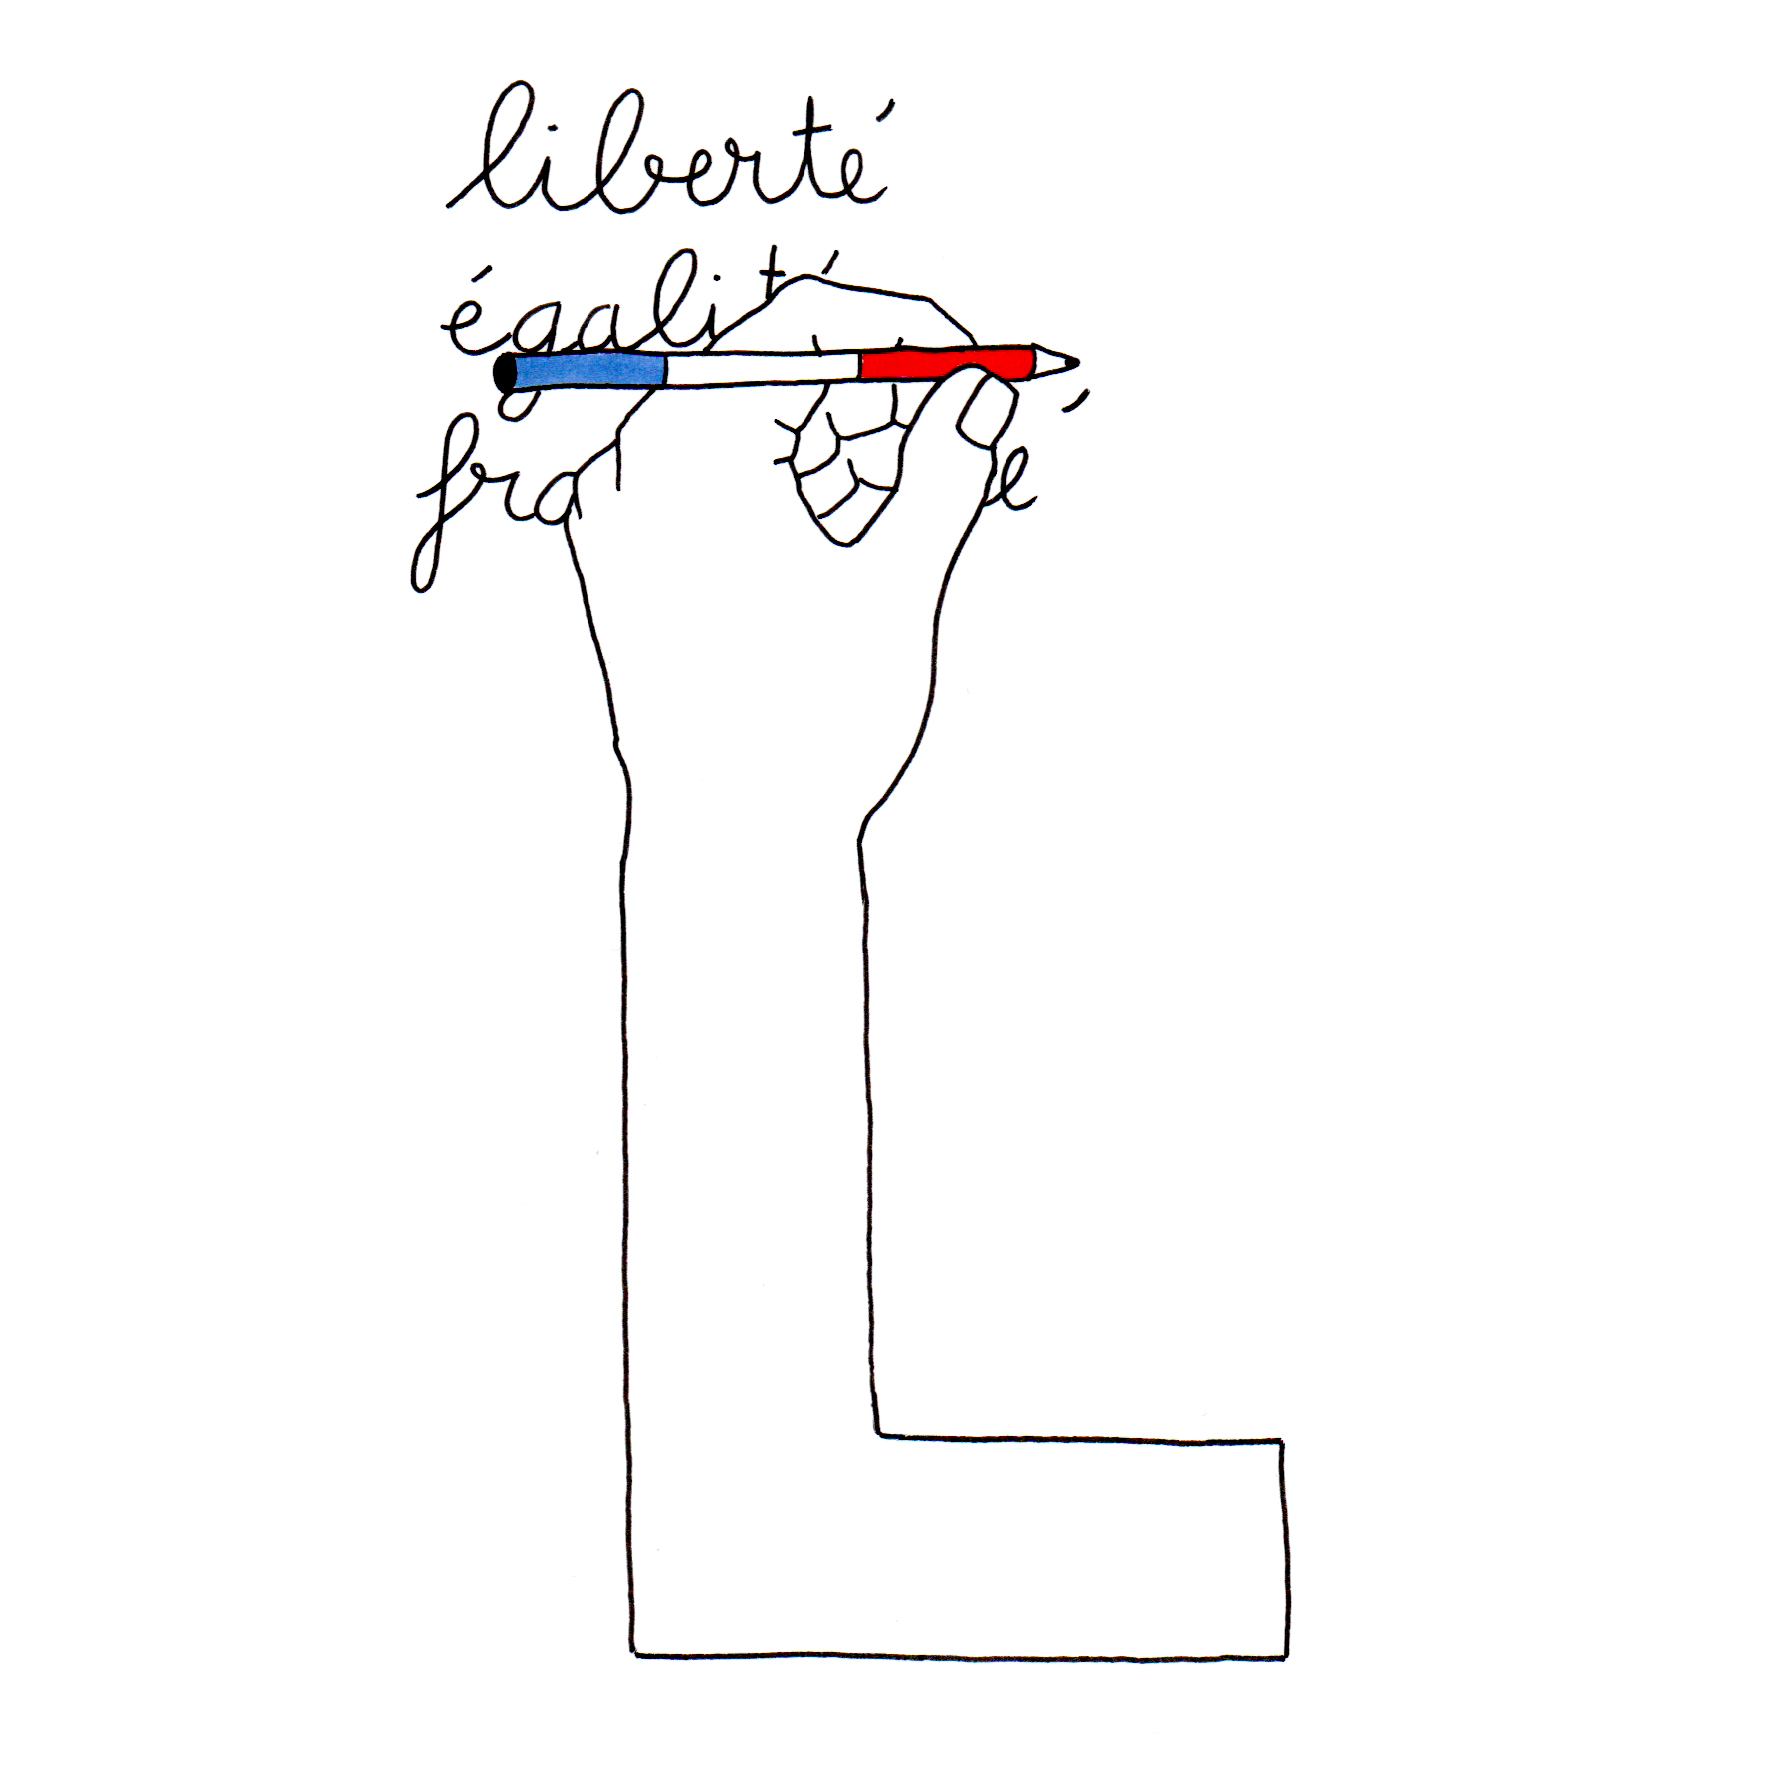 liberté
égalité
fra é
L